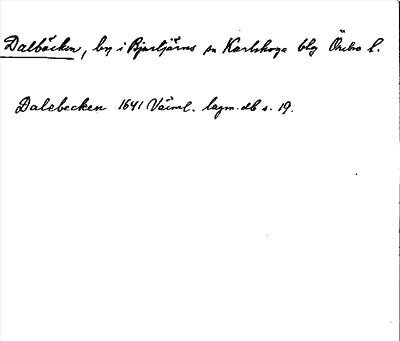 Dalbäcken, by i Bjurtjärns sn Karlskoga blg Örebro l.
Dalebecken 1641 Värml. lagm. db s. 19.